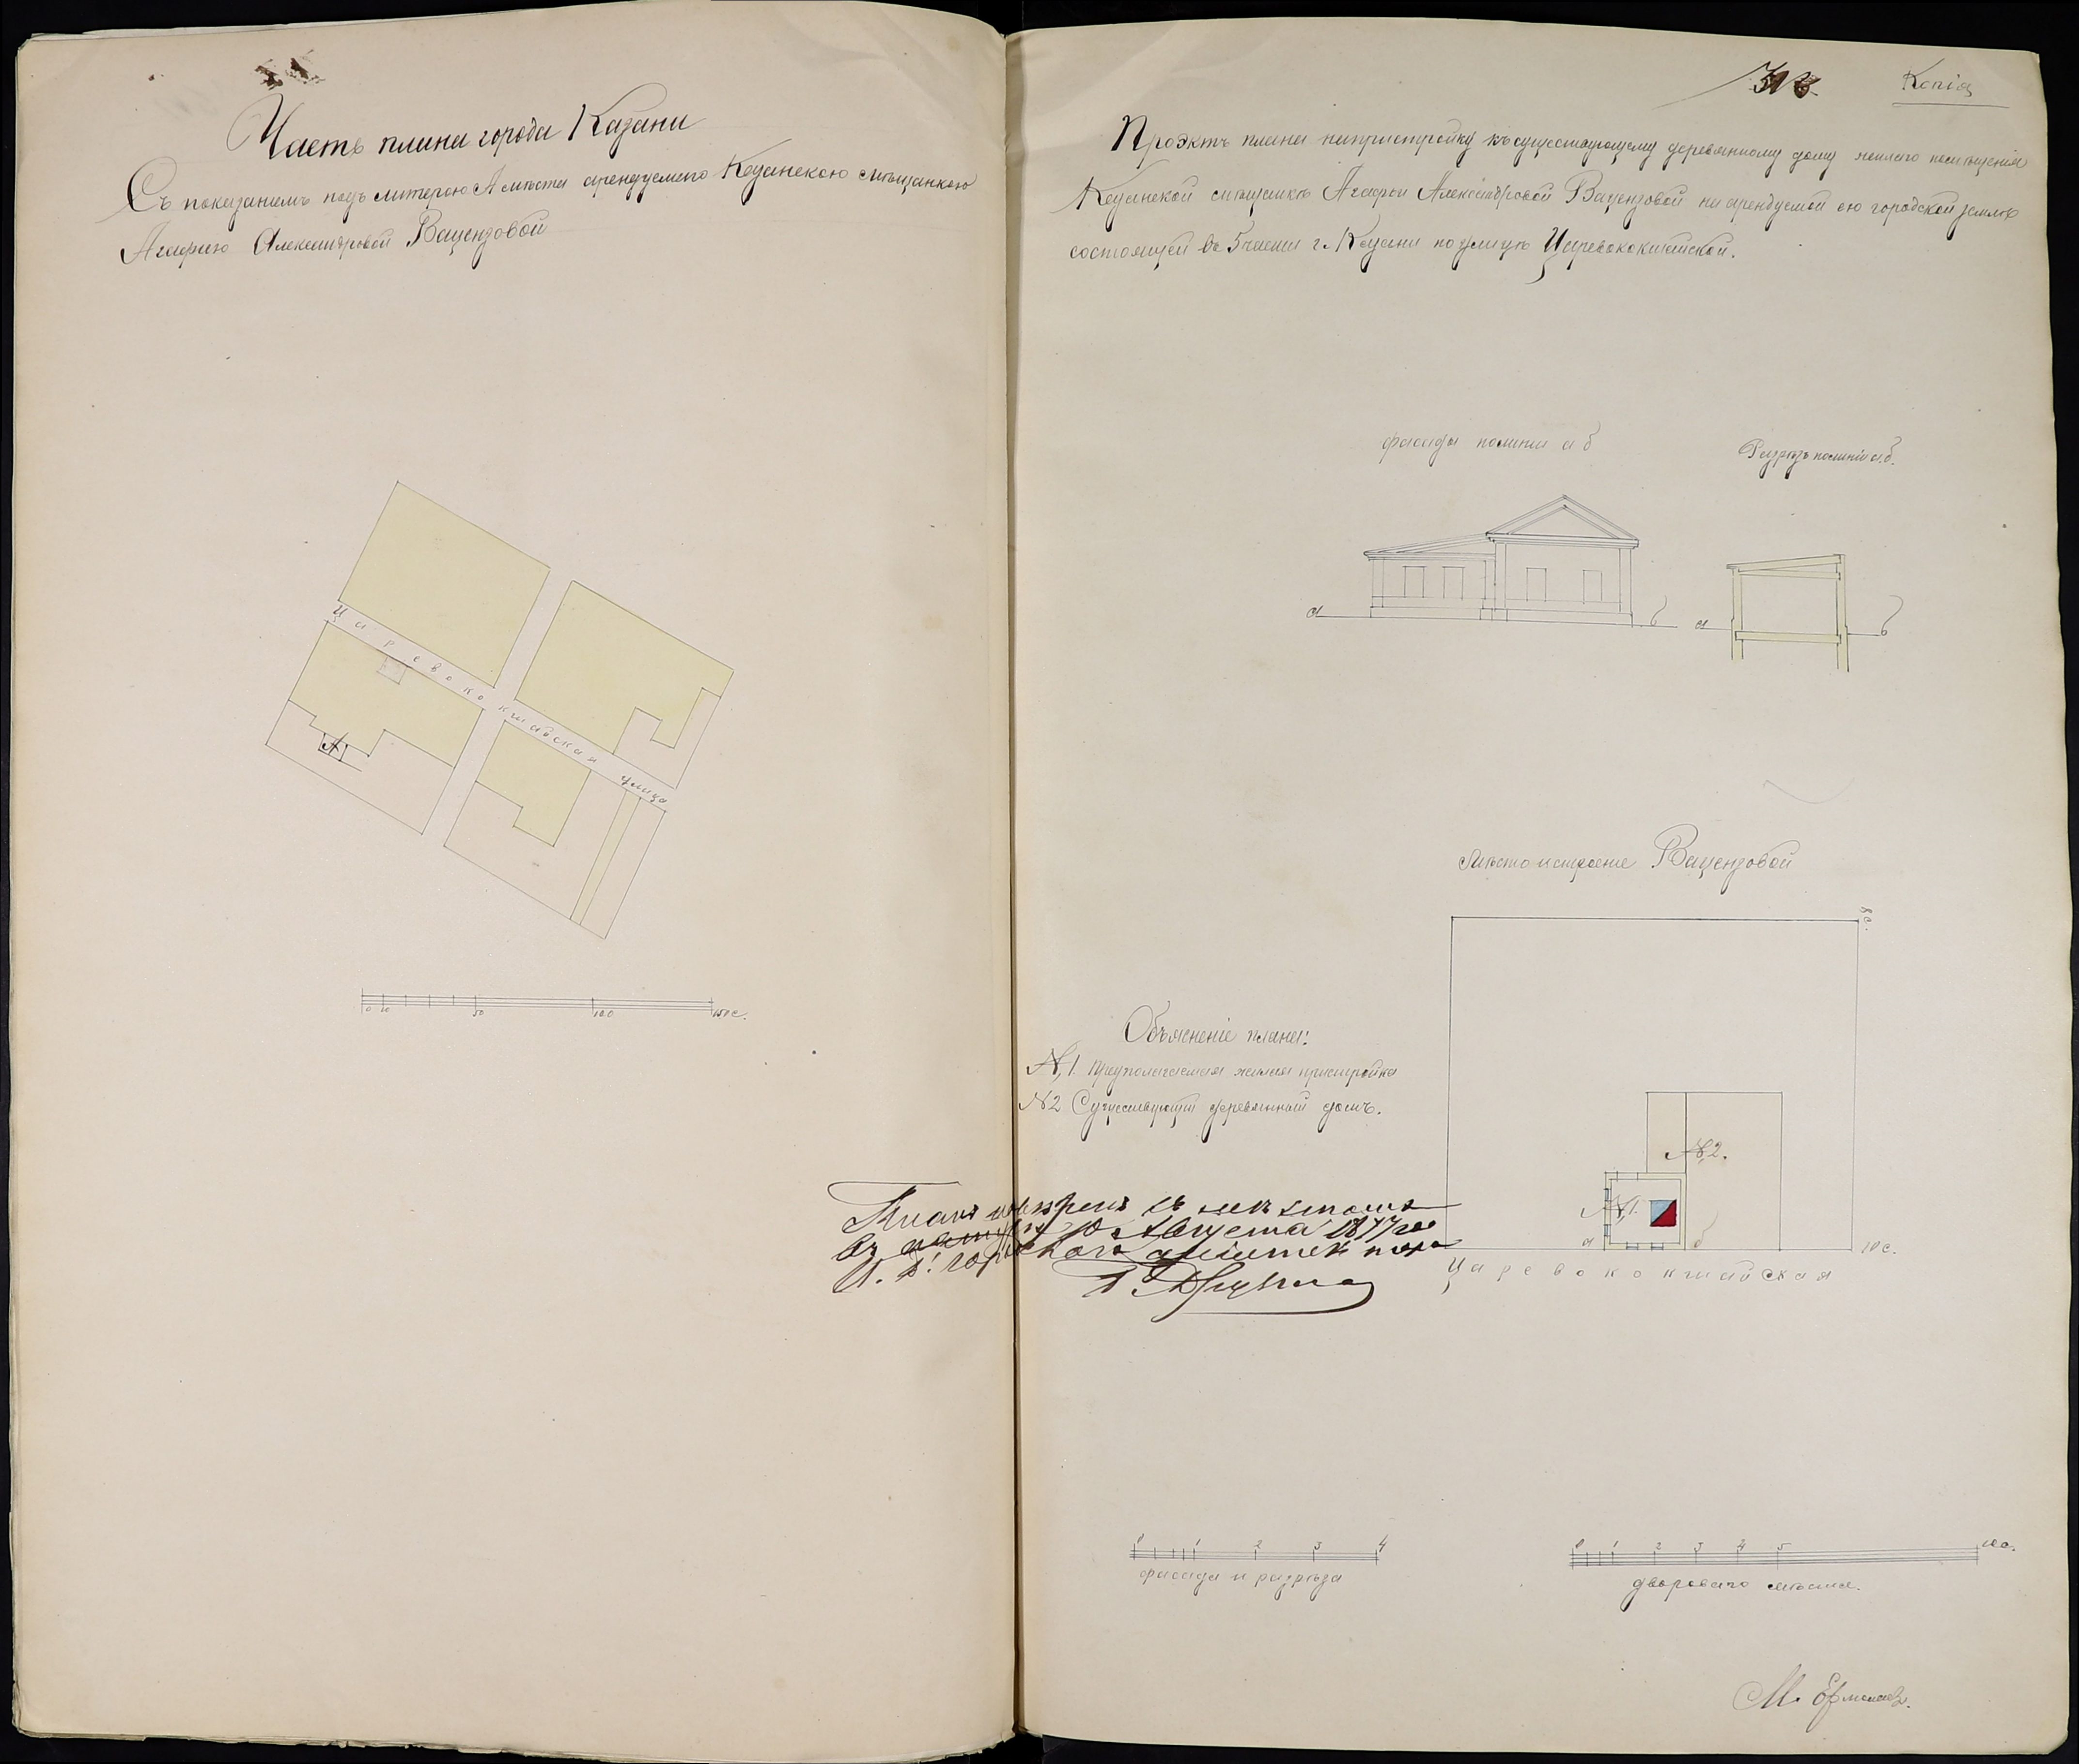 Часть плана города Казани
Съ показаніемъ подъ литерою А мѣста арендуемаго Казанскою мѣщанкою
Агафіею Александровой Ваценздовой
Царевококшайская улица
А
0 10 50 100 150 с.
Копія
Проэктъ плана на пристройку къ существующему деревянному дому жилаго помѣщенія
Казанской мѣщанкѣ Агафіи Александровой на арендуемой ею городской землѣ
состоящей въ 5 части г. Казани по улицѣ Царевококшайской.
фасадъ по линіи а б
Разрѣзъ по линіи а. б.
а б а б
Мѣсто и строеніе
8 с.
Объясненіе плана:
№ 1. Предполагаемая жилая пристройка
№ 2 Существующій деревянный домъ.
№ 2.
№ 1.
а б
10 с.
Царевококшайская
Планъ повѣренъ съ мѣстомъ
въ натурѣ 10 Августа 1877 года
И. д. городскаго архитектора
0 1 2 3 4
фасада и разрѣза
0 1 2 3 4 5 10 с.
двороваго мѣста.
М. Ермолаевъ.